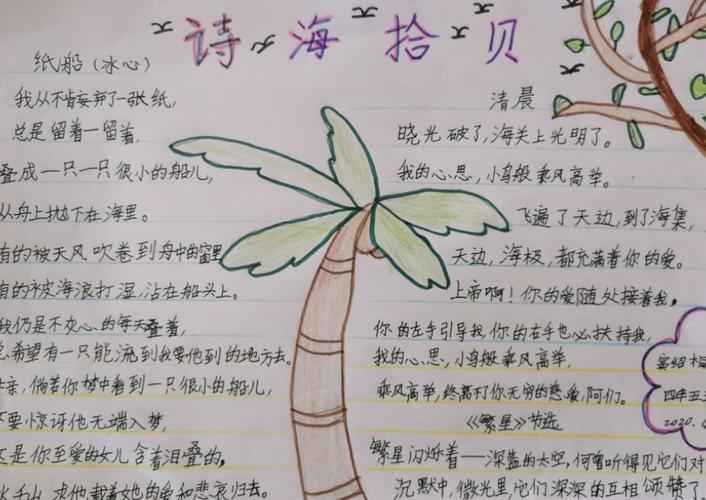 诗海拾贝
纸船（冰心）
我从不肯妄弃了一张纸，
总是留着一留着，
叠成一只一只很小的船儿，
从舟上抛下在海里。
有的被天风吹卷到舟中的窗里
有的被海浪打湿，沾在船头上。
我仍是不灰心的每天叠着，
总希望有一只能流到我要他到的地方去。
母亲，倘若你梦中看到一只很小的船儿，
不要惊讶他无端入梦，
这是你至爱的女儿含着泪叠的，
万水千山，求他载着她的爱和悲哀归去。
清晨
晓光破了，海关上光明了。
我的心思，小鸟般乘风高举。
飞遍了天边，到了海集，
天边，海极，都充满着你的爱。
上帝啊！你的爱随处接着我，
你的左手引导我，你的右手也必扶持我，
我的心思，小鸟般乘风高举，
乘风高举，终离不了你无穷的慈爱，阿们。
《繁星》节选
繁星闪烁着——深蓝的太空，何曾听得见它们对
沉默中，微光里它们深深的互相颂赞了
四年五
2020.